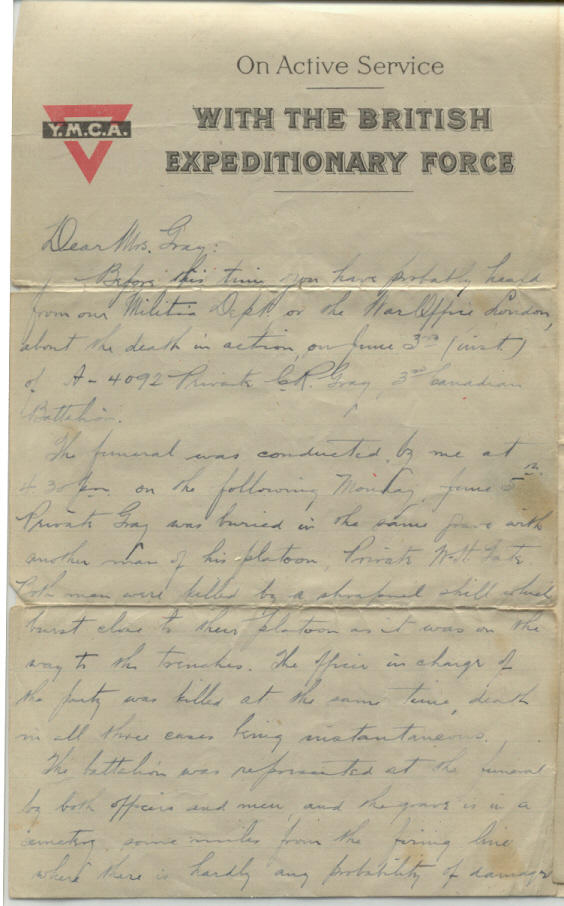 On Active Service
WITH THE BRITISH
EXPEDITIONARY FORCE
Y.M.C.A.
Dear Mrs. Gray:
Before this time you have probably heard
from our Militia Dept. or the War Office London,
about the death in action, on June 3rd (inst.)
of A-4092 Private C.R. Gray, 3rd Canadian
Battalion.
The funeral was conducted by me at
4.30 pm on the following Monday, June 5th.
Private Gray was buried in the same grave with
another man of his platoon, Private W.H.
Both men were killed by a shrapnel shell which
burst close to their platoon as it was on the
way to the trenches. The officer in charge of
the party was killed at the same time, death
in all three cases being instantaneous.
The battalion was represented at the funeral
by both officers and men, and the grave is in a
cemetery some miles from the firing line
where there is hardly any probability of damage